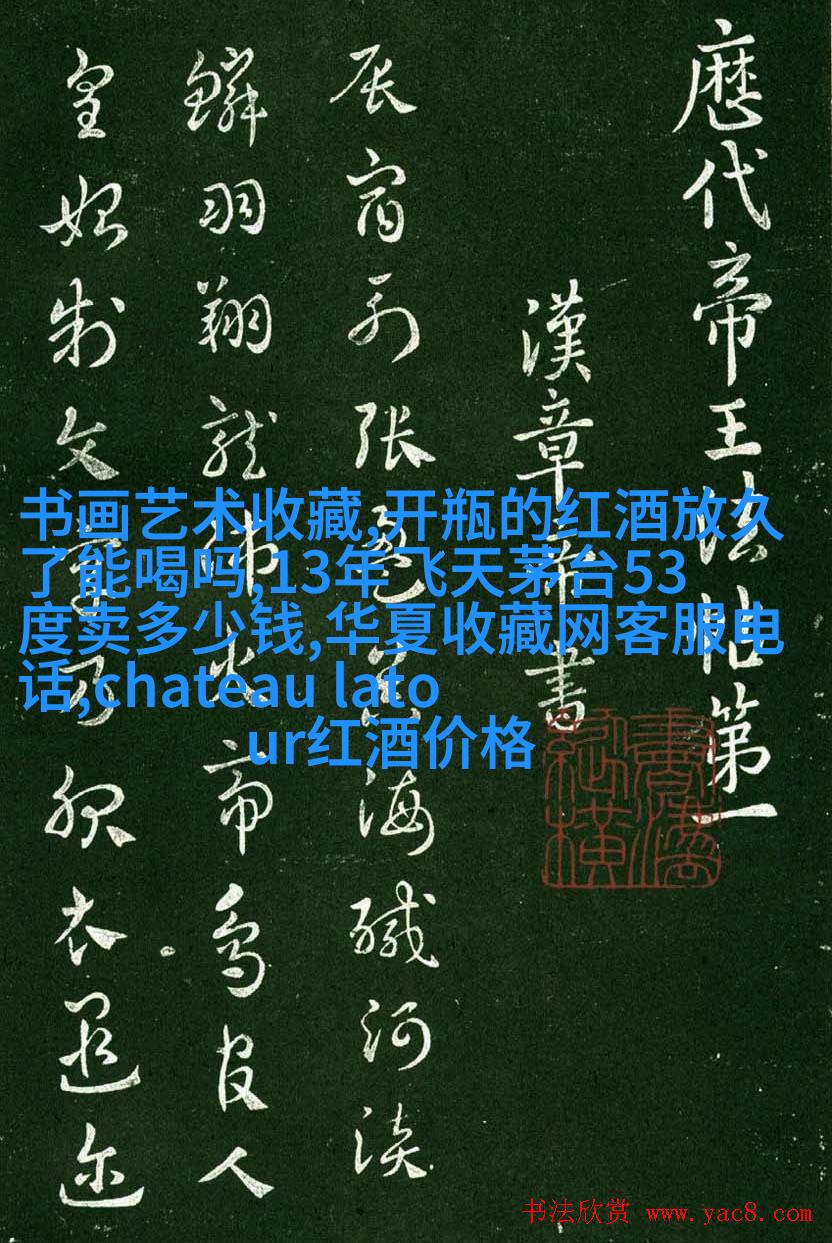 歷代帝王法帖第一
漢章帝書
辰宿列張海鹹河淡
鱗羽翔龍師火帝鳥官人
皇始制文字乃服衣遐迩
书画艺术收藏,开瓶的红酒放久
了能喝吗,13年飞天茅台53
度卖多少钱,华夏收藏网客服电
话,chateau lato
ur红酒价格
书法欣赏 www.yac8.com